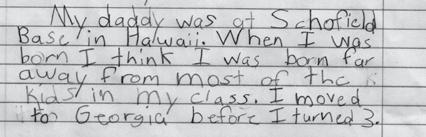 My daddy was at Schofield
Base in Halwaii. When I was
born I think I was born far
away from most of the
kids in my class. I moved
to Georgia before I turned 3.